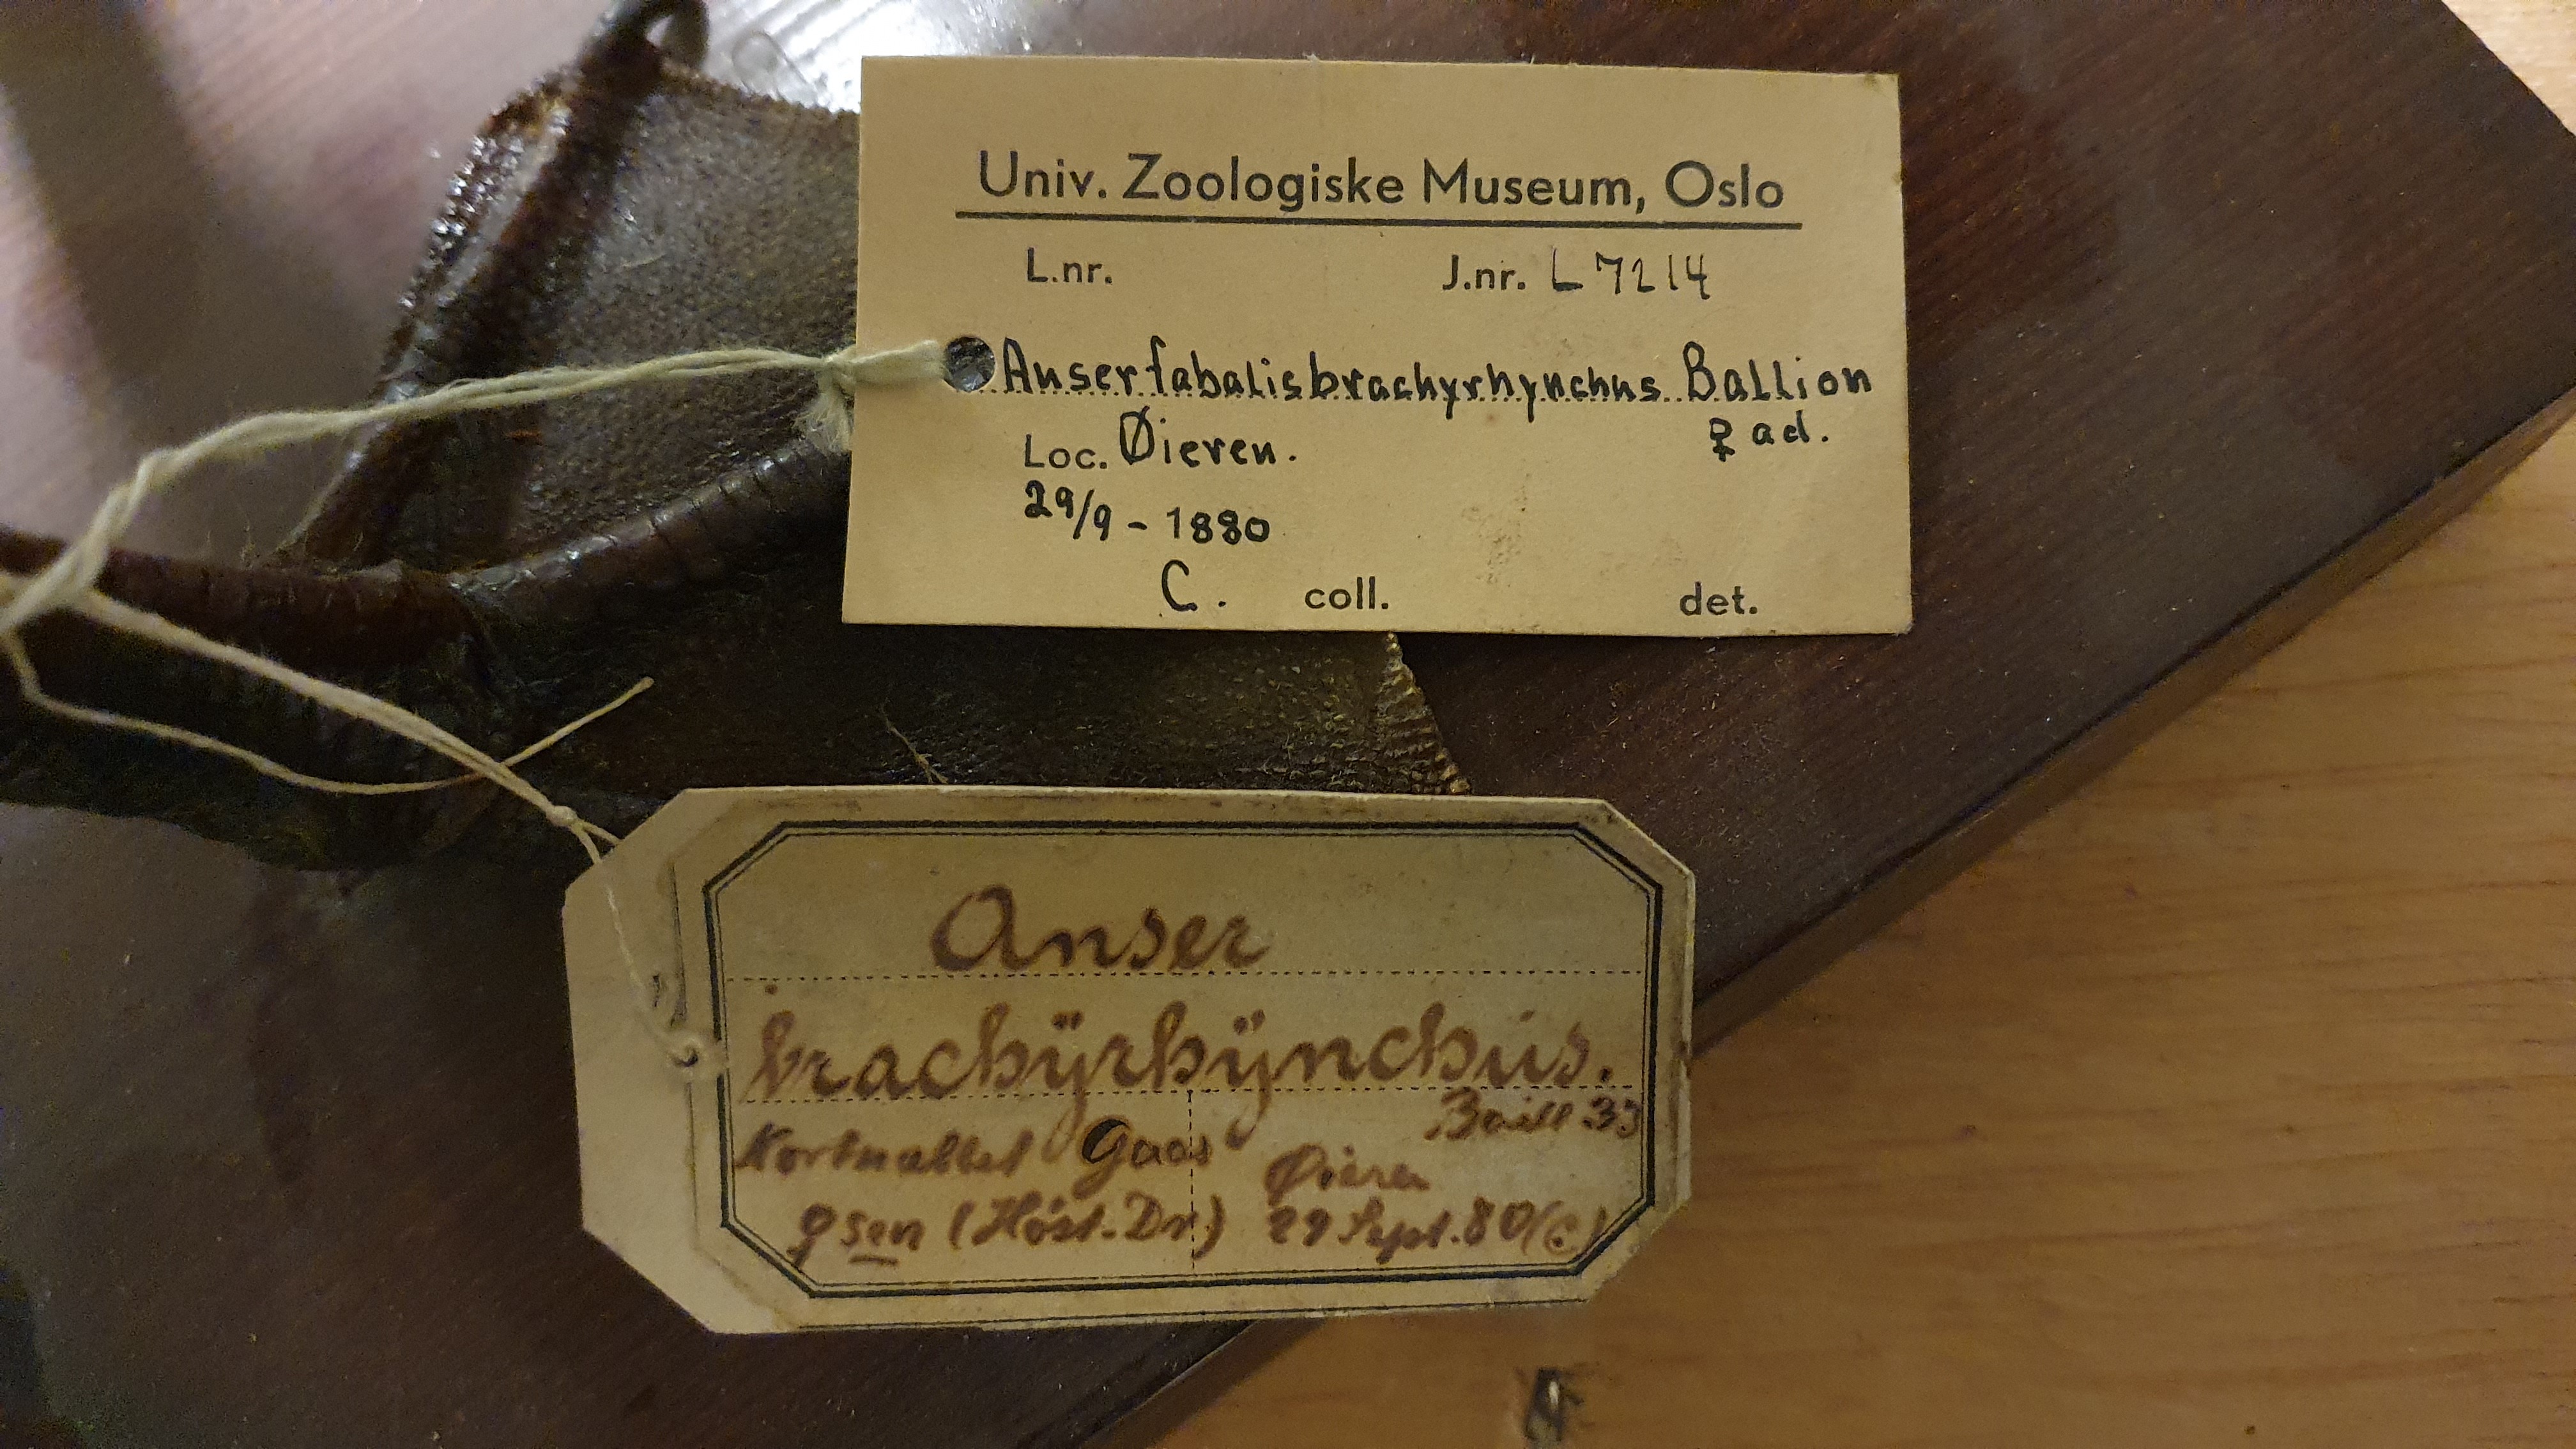 Univ. Zoologiske Museum, Oslo
L.nr. J.nr. L 7214
Anser fabalis brachyrhynchus Ballion
♀ ad.
Loc. Øieren.
29/9 - 1880
C. coll. det.
Anser
brachÿrhÿnchus.
Baill 33
Kortnæbbet Gaas Øieren
♀ sen (Høst-Dr.) 29 Sept. 80 (C)